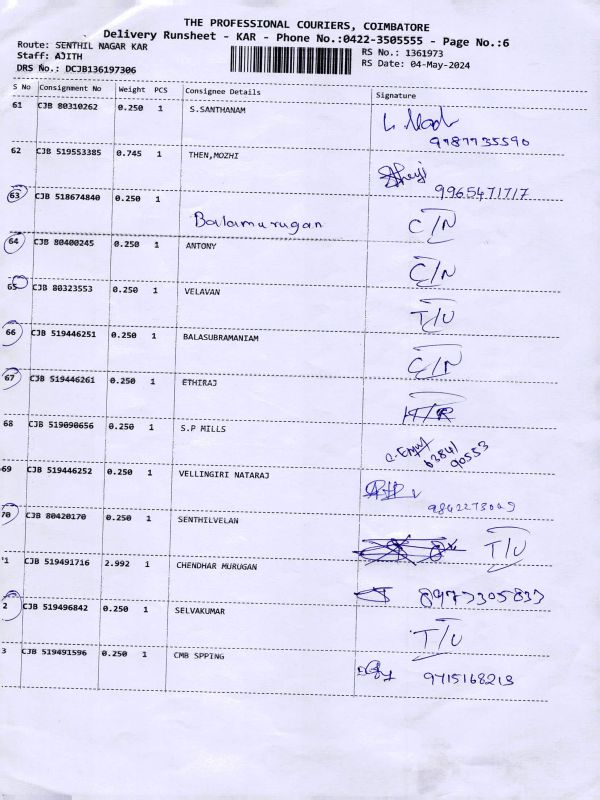 THE PROFESSIONAL COURIERS, COIMBATORE
Delivery Runsheet - KAR - Phone No.:0422-3505555 - Page No.:6
Route: SENTHIL NAGAR KAR
RS No.: 1361973
Staff: AJITH
RS Date: 04-May-2024
DRS No.: DCJB136197306
S No Consignment No Weight PCS Consignee Details Signature
61 CJB 80310262 0.250 1 S.SANTHANAM
9787735590
62 CJB 519553385 0.745 1 THEN,MOZHI
9965471717
63 CJB 518674840 0.250 1
Balamurugan C/N
64 CJB 80400245 0.250 1 ANTONY
C/N
65 CJB 80323553 0.250 1 VELAVAN
T/U
66 CJB 519446251 0.250 1 BALASUBRAMANIAM
C/N
67 CJB 519446261 0.250 1 ETHIRAJ
68 CJB 519090656 0.250 1 S.P MILLS
63841
90553
69 CJB 519446252 0.250 1 VELLINGIRI NATARAJ
70 CJB 80420170 0.250 1 SENTHILVELAN
T/U
1 CJB 519491716 2.992 1 CHENDHAR MURUGAN
8973305833
2 CJB 519496842 0.250 1 SELVAKUMAR
T/U
3 CJB 519491596 0.250 1 CMB SPPING
9715168213